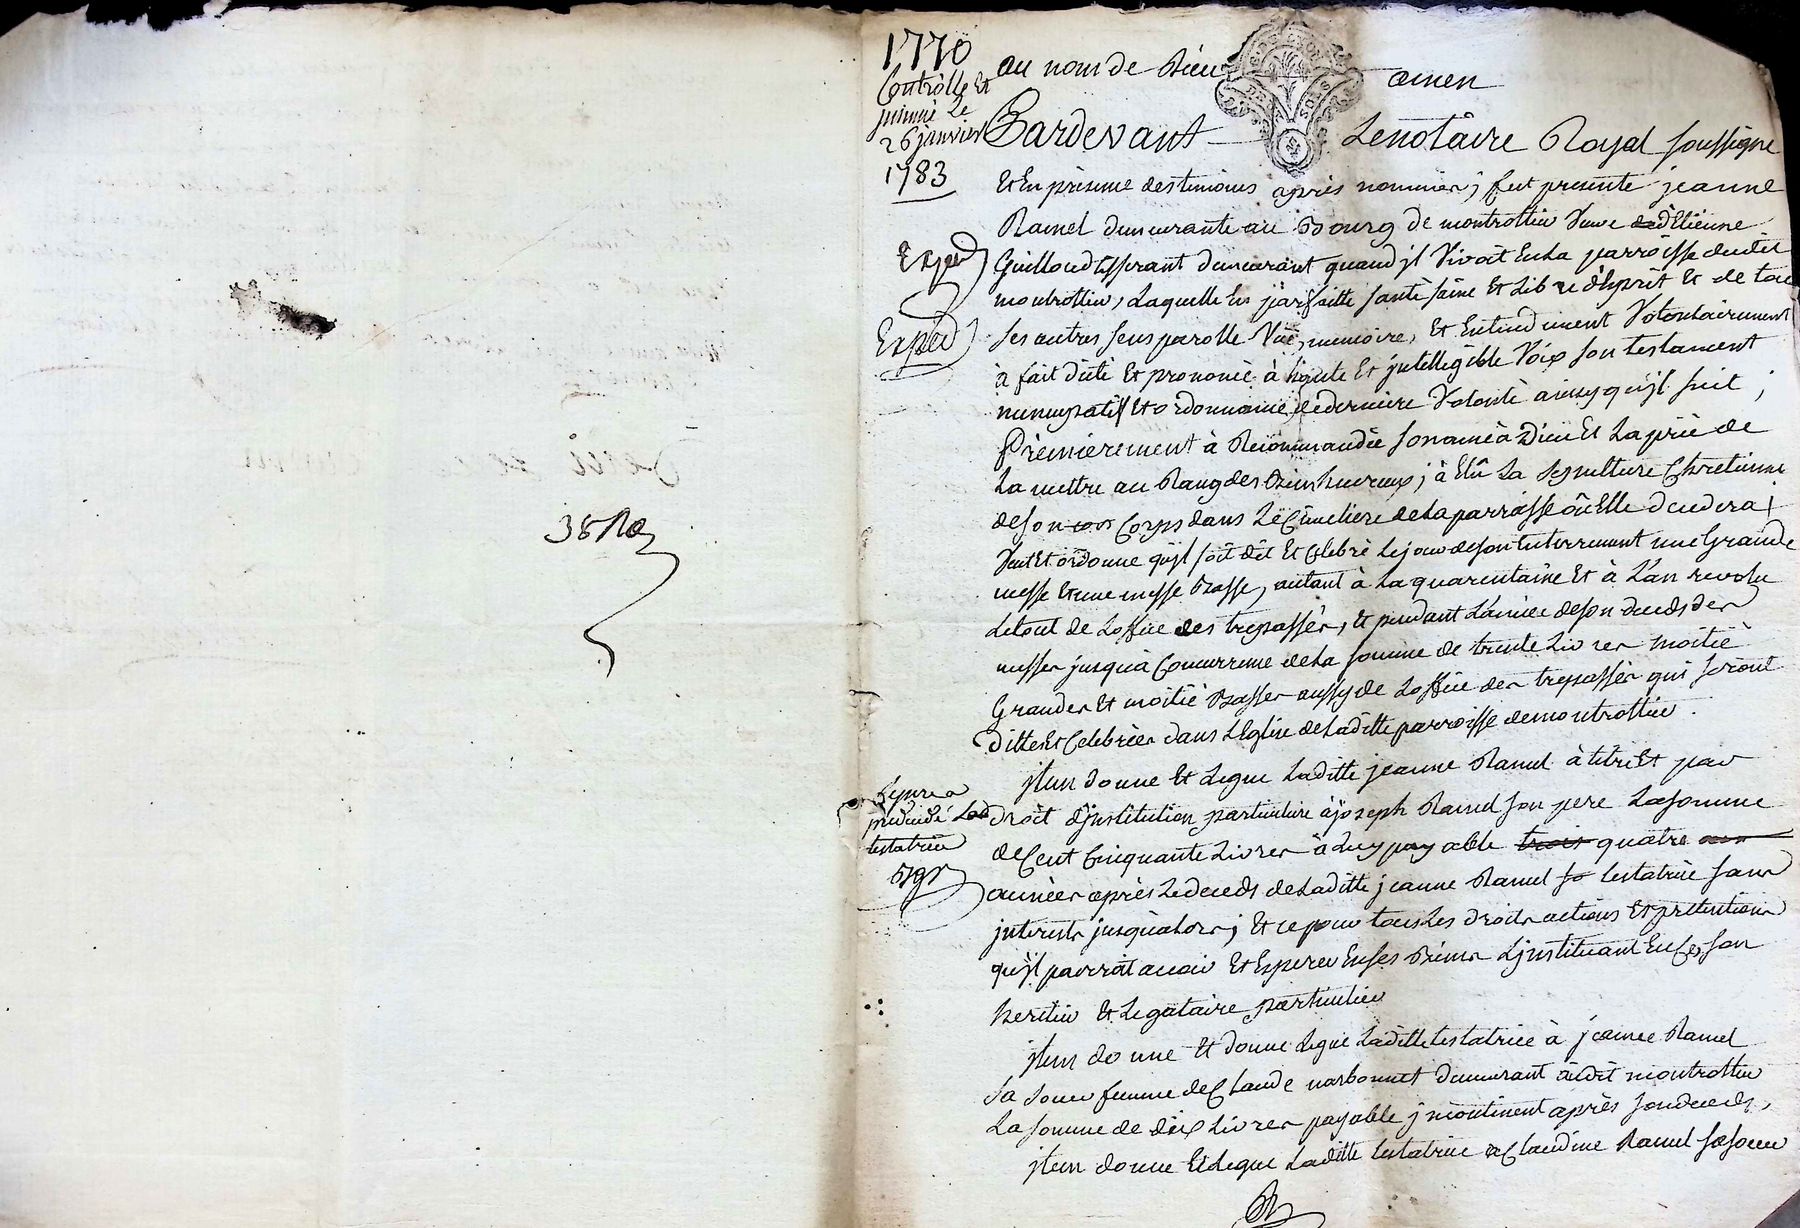 38 Re
1770
Controllé Et
le
26 janvier
1783
Exped
Exped
au nom de Dieu amen
Pardevant Le notaire Royal soussigne
Et En presence des temoins après nommés ; fut presente jeanne
Ramel demeurante au Bourg de montrottier Veuve ded'Etienne
Guilloud tisserant demeurant quand jl Vivoit En La parroisse dudit
montrottier, Laquelle En parfaitte santé saine Et Libre d'Esprit Et de tou
ses autres sens parolle Vüe, memoire, Et Entendement Volontairement
à fait dicté Et prononcé à haute Et jntelligible Voix son testament
nuncupatif Et ordonnance de derniere Volonté ainsy qu'jl suit ;
Premierement à Recommandée son ame à Dieu Et La priè de
La mettre au Rang des Bienheureux ; à Elû La sepulture Chretienne
de son cor Corps dans Le Cimetiere de La parroisse oû Elle decedera ;
Veut Et ordonne qu'jl soit dit Et Celebré Le jour de son Enterrement une Grande
messe Et une messe Basse, autant à La quarentaine Et à L'an revolu
Le tout de Loffice des trepassés, Et pendant L'année de son deceds des
messes jusqu'à Concurrence de La somme de trente Livres moitié
Grandes Et moitié Basses aussy de Loffice des trepassés qui seront
dittes Et Celebrées dans L'Eglise de Laditte parroisse de montrottier.
jtem donne Et Legue Laditte jeanne Ramel à titre Et par
Le pere a
predecedé Lad
testatrice
droit d'jnstitution particuliere à joseph Ramel son pere La somme
de Cent Cinquante Livres à Luy payable trois quatre ans
années après Le deceds de Laditte jeanne Ramel sa testatrice sans
jnterests jusqu'alors ; Et ce pour tous Les droits actions Et pretentions
qu'jl pourroit avoir Et Esperer En ses Biens L'jnstituant En Ce son
heritier Et Legataire particulier
jtem donne Et donne Legue Laditte testatrice à jeanne Ramel
sa soeur femme de Claude narbonnet demeurant audit montrottier
La somme de dix Livres payable jncontinent après son deceds,
jtem donne Et Legue Laditte testatrice a Claudine Ramel sa soeur